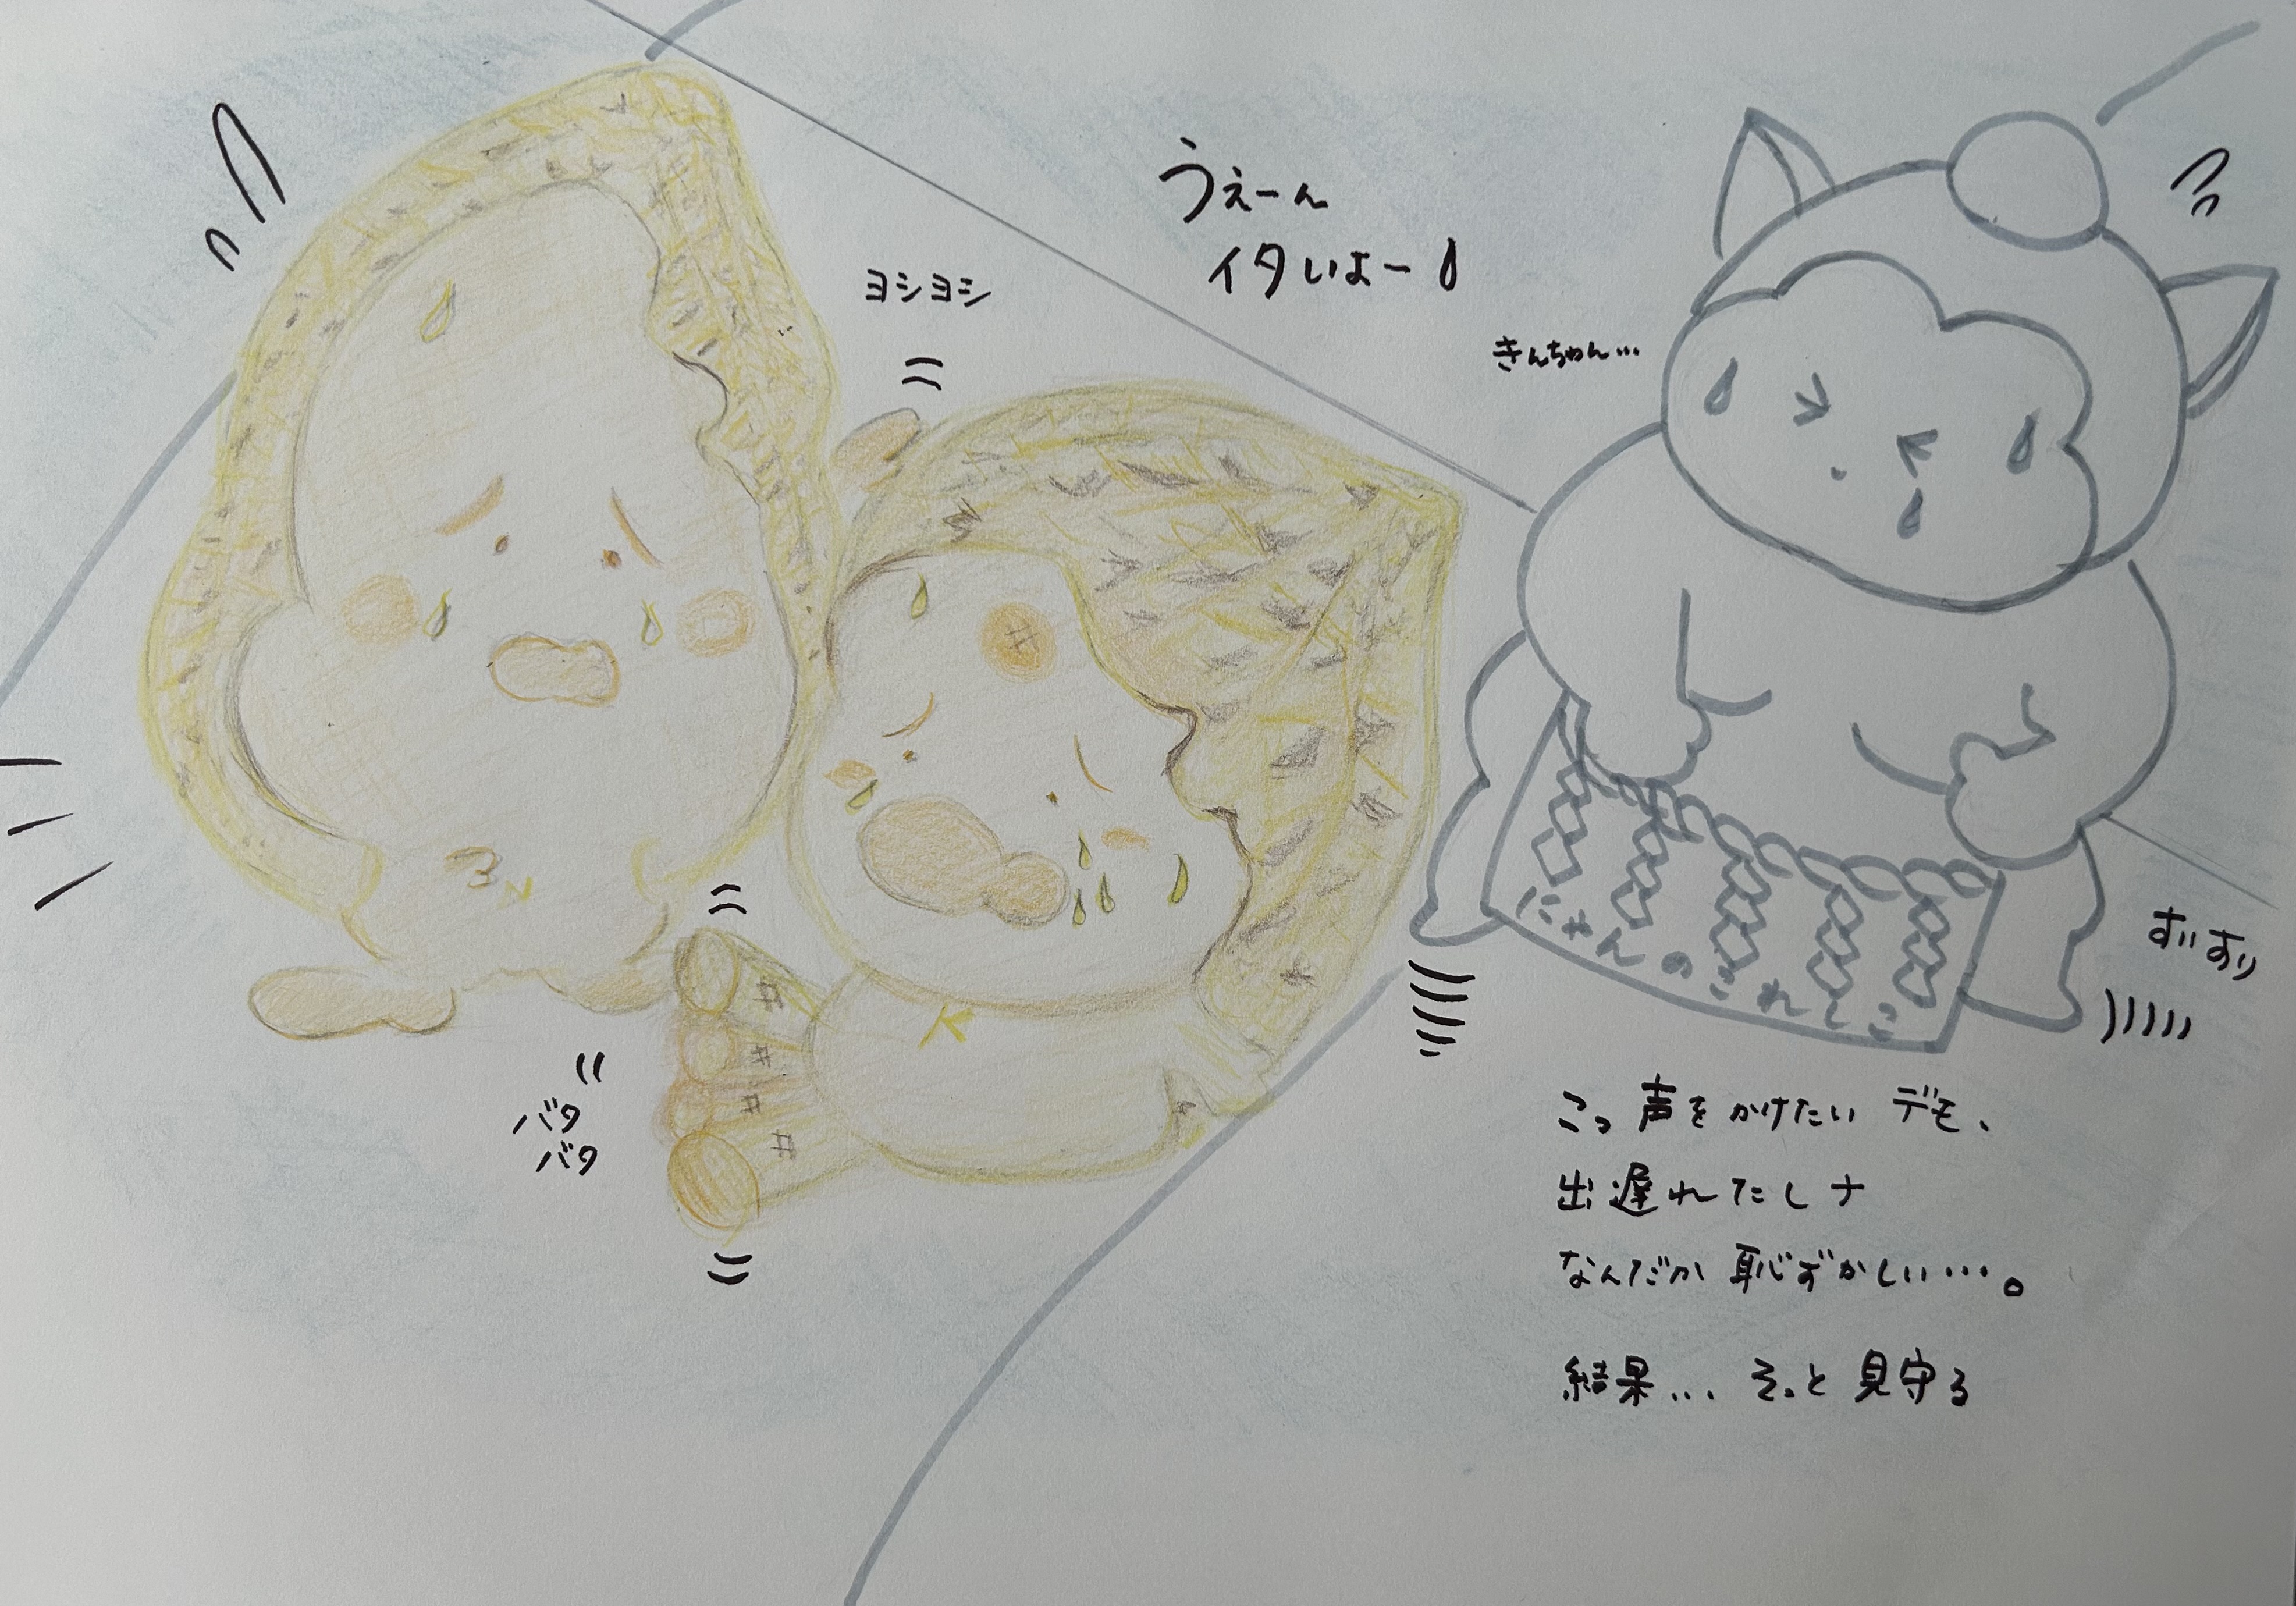 うえーん
イタいよー
ヨシヨシ
きんちゃん…
N
K
バタ
バタ
にゃんのこれしこ
ずりずり
こっ声をかけたい デモ、
出遅れたしナ
なんだか恥ずかしい…。
結果… そっと見守る